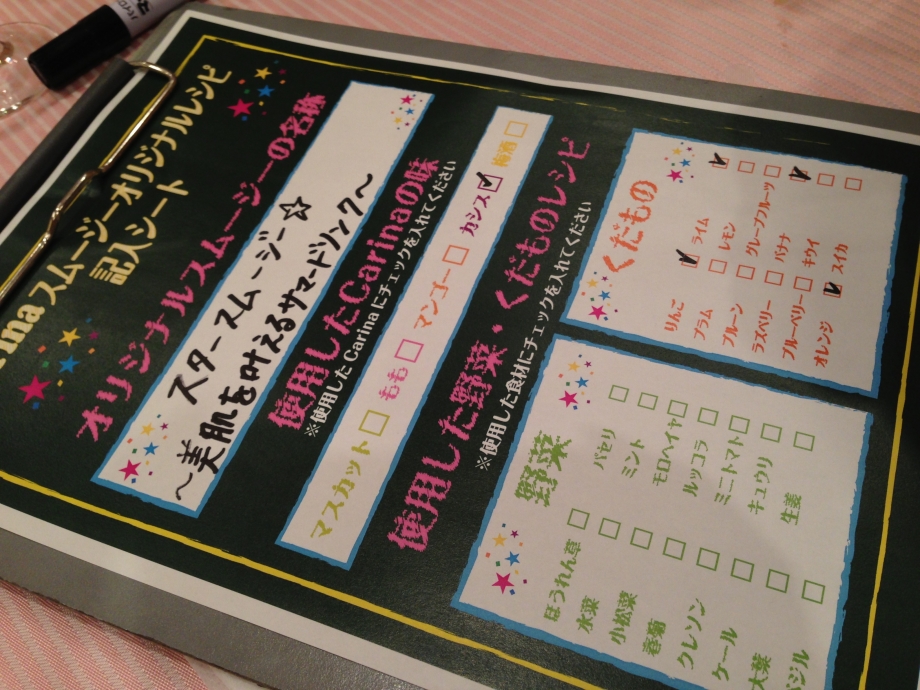 ina スムージーオリジナルレシピ
記入シート
オリジナルスムージーの名称
スタースムージー☆
〜美肌を叶えるサマードリンク〜
使用したCarinaの味
※使用した Carina にチェックを入れてください
マスカット□ もも□ マンゴー□ カシス☑ 梅酒□
使用した野菜・くだものレシピ
※使用した食材にチェックを入れてください
野菜
ほうれん草□ パセリ□
水菜□ ミント□
小松菜□ モロヘイヤ□
春菊□ ルッコラ□
クレソン□ ミニトマト□
ケール□ キュウリ□
大葉□ 生姜□
バジル□
くだもの
りんご☑ ライム☑
プラム□ レモン□
プルーン□ グレープフルーツ□
ラズベリー□ バナナ☑
ブルーベリー□ キウイ□
オレンジ☑ スイカ□